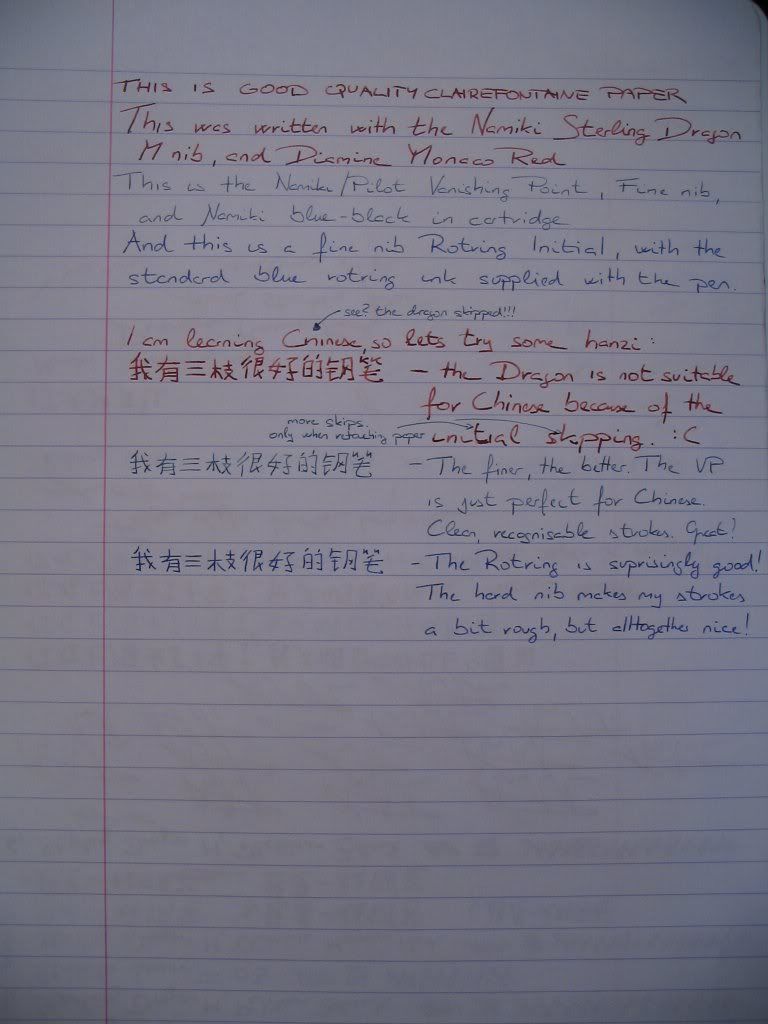 THIS IS GOOD QUALITY CLAIREFONTAINE PAPER
This was written with the Namiki Sterling Dragon
M nib, and Diamine Monaco Red
This is the Namiki/Pilot Vanishing Point, Fine nib,
and Namiki blue-black in catridge
And this is a fine nib Rotring Initial, with the
standard blue rotring ink supplied with the pen.
see? the dragon skipped!!!
I am learning Chinese, so lets try some hanzi:
我有三枝很好的钢笔 - the Dragon is not suitable
for Chinese because of the
more skips.
only when retouching paper
initial skipping. :C
我有三枝很好的钢笔 - The finer, the better. The VP
is just perfect for Chinese.
Clean, recognisable strokes. Great!
我有三枝很好的钢笔 - The Rotring is suprisingly good!
The hard nib makes my strokes
a bit rough, but alltogether nice!